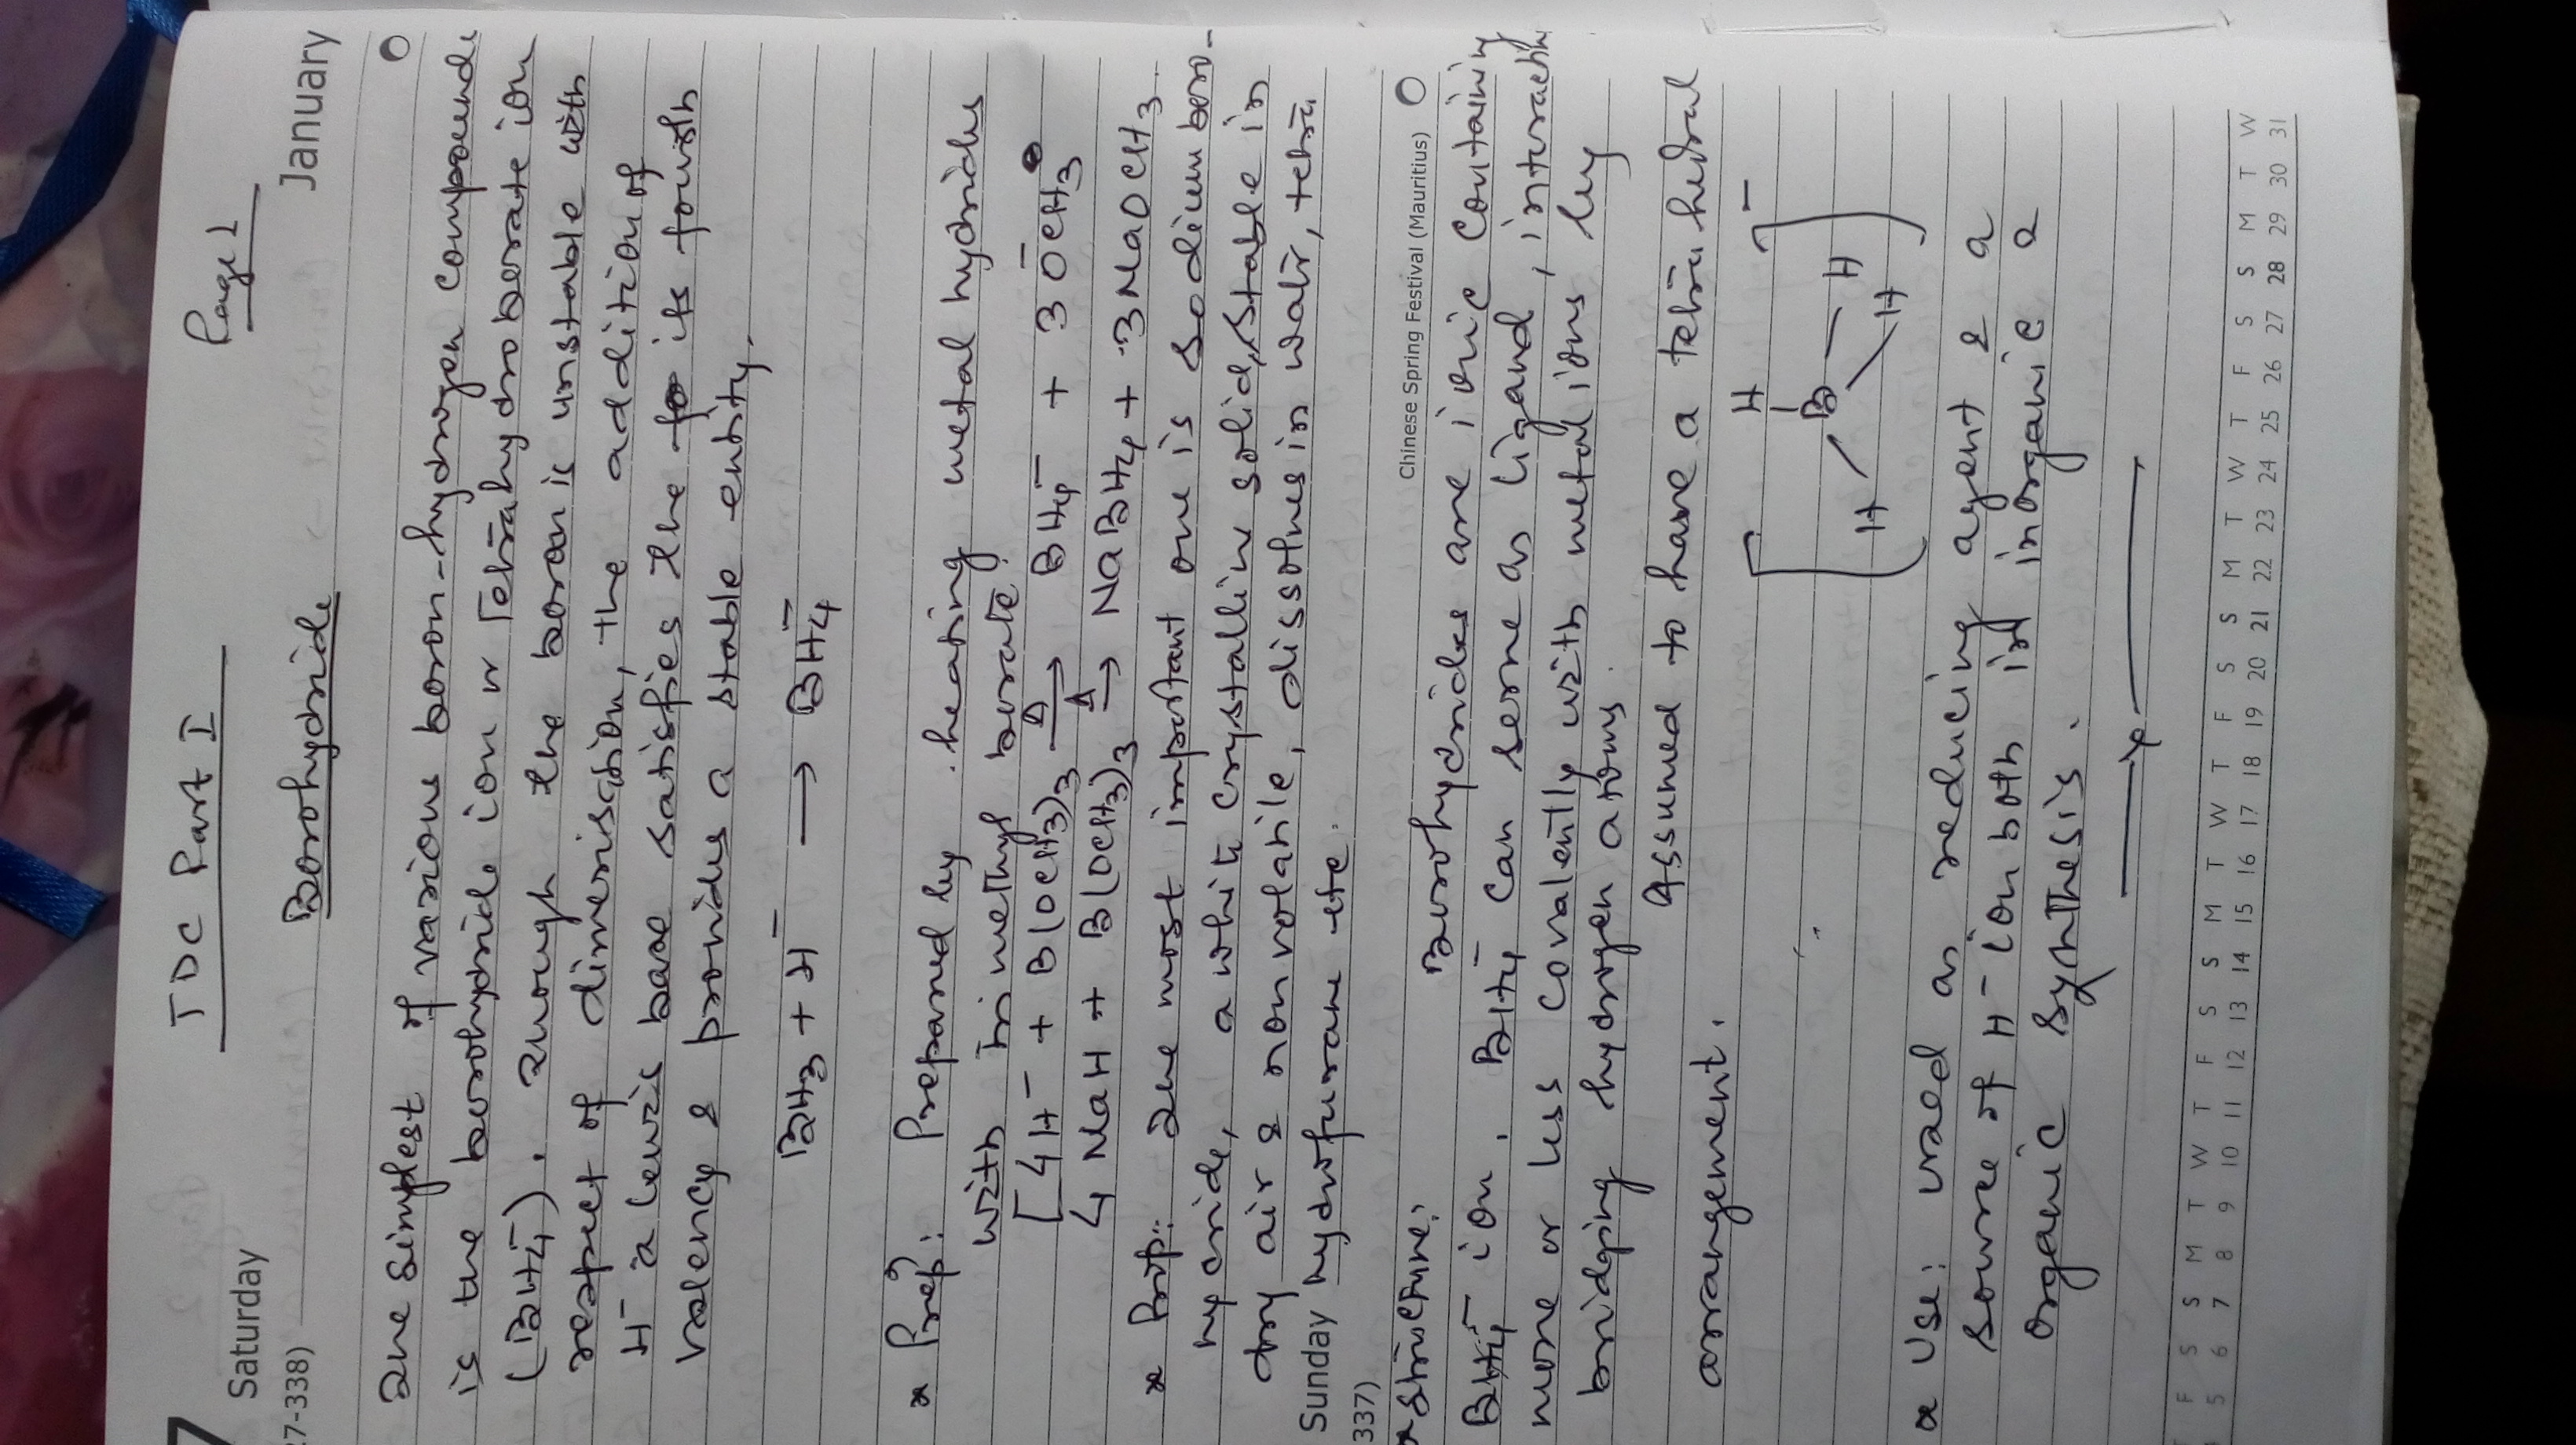 TDC Part I Page 1
7 Saturday January
27-338) Borohydride
The simplest of various boron-hydrogen compounds
is the borohydride ion or Tetrahydroborate ion
(BH₄⁻). Though the boron is unstable with
respect of dimerisation, the addition of
H⁻ a lewis base satisfies the its fourth
valency & provides a stable entity.
BH₃ + H⁻ → BH₄⁻
x Prepⁿ: Prepared by heating metal hydrides
with trimethyl borate.
[4H⁻ + B(OCH₃)₃ →Δ BH₄⁻ + 3 O⁻CH₃
4 NaH + B(OCH₃)₃ →Δ NaBH₄ + 3NaOCH₃
x Prop: The most important one is sodium boro-
hydride, a white crystalline solid, stable in
dry air & nonvolatile, dissolves in water, tetra
Sunday hydrofurane etc.
337) Chinese Spring Festival (Mauritius)
x Structure: Borohydrides are ionic containing
BH₄⁻ ion. BH₄⁻ can serve as ligand, interacting
more or less covalently with metal ions by
bridging hydrogen atoms.
Assumed to have a tetrahedral
arrangement.
H
B
H H
H
−
x Use: used as reducing agent & a
source of H⁻ ion both in inorganic &
organic synthesis.
F S S M T W T F S S M T W T F S S M T W T F S S M T W
5 6 7 8 9 10 11 12 13 14 15 16 17 18 19 20 21 22 23 24 25 26 27 28 29 30 31